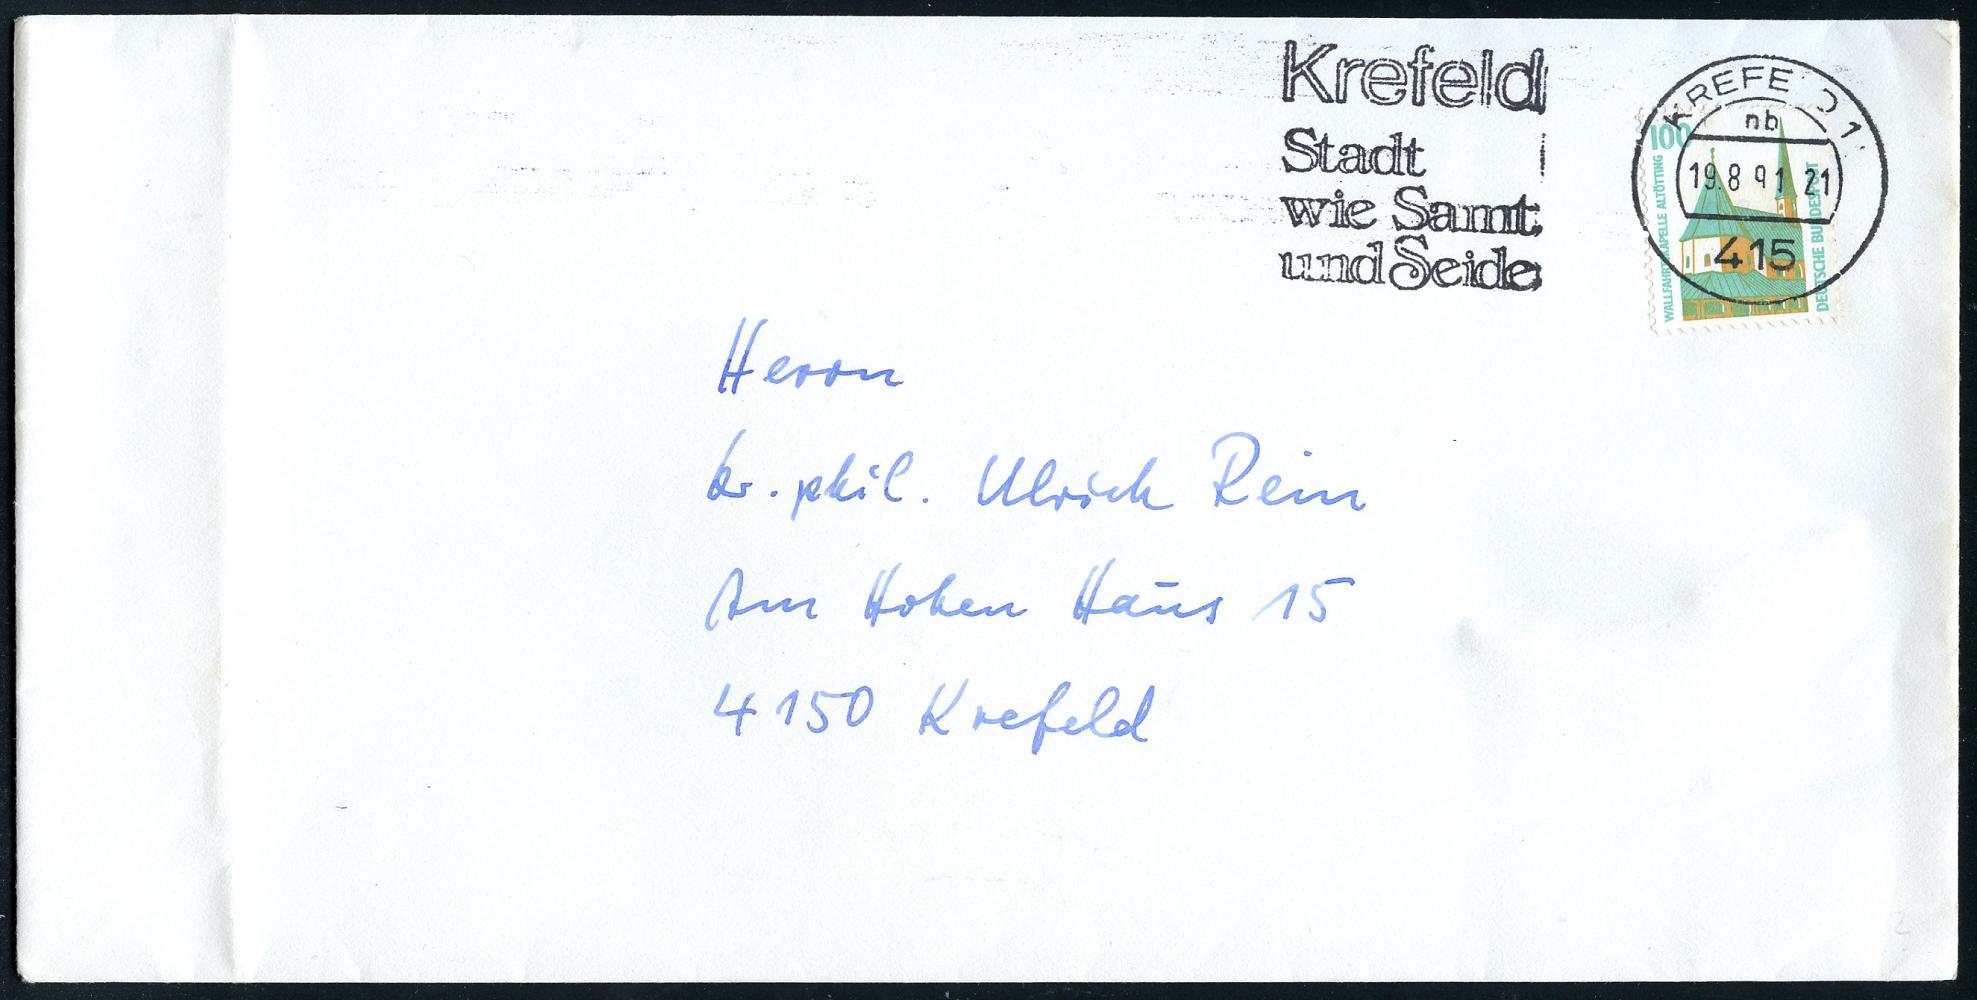 Krefeld
Stadt
wie Samt
und Seide
KREFE D 1
nb
19.8 91 21
415
100
WALLFAHRTSKAPELLE ALTÖTTING
DEUTSCHE BUNDESPOST
Herrn
Dr. phil. Ulrich Rein
Am Hohen Haus 15
4150 Krefeld